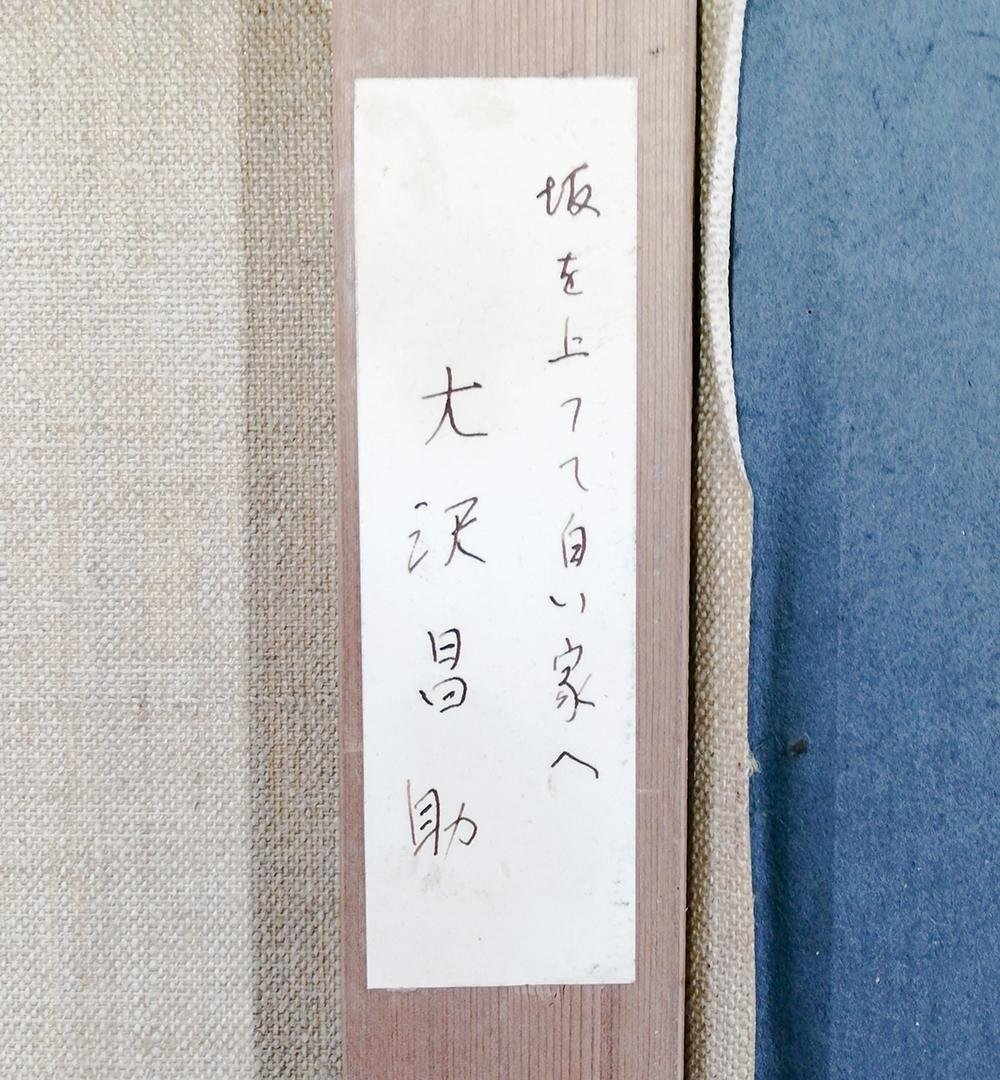 坂を上って白い家へ
大沢昌助